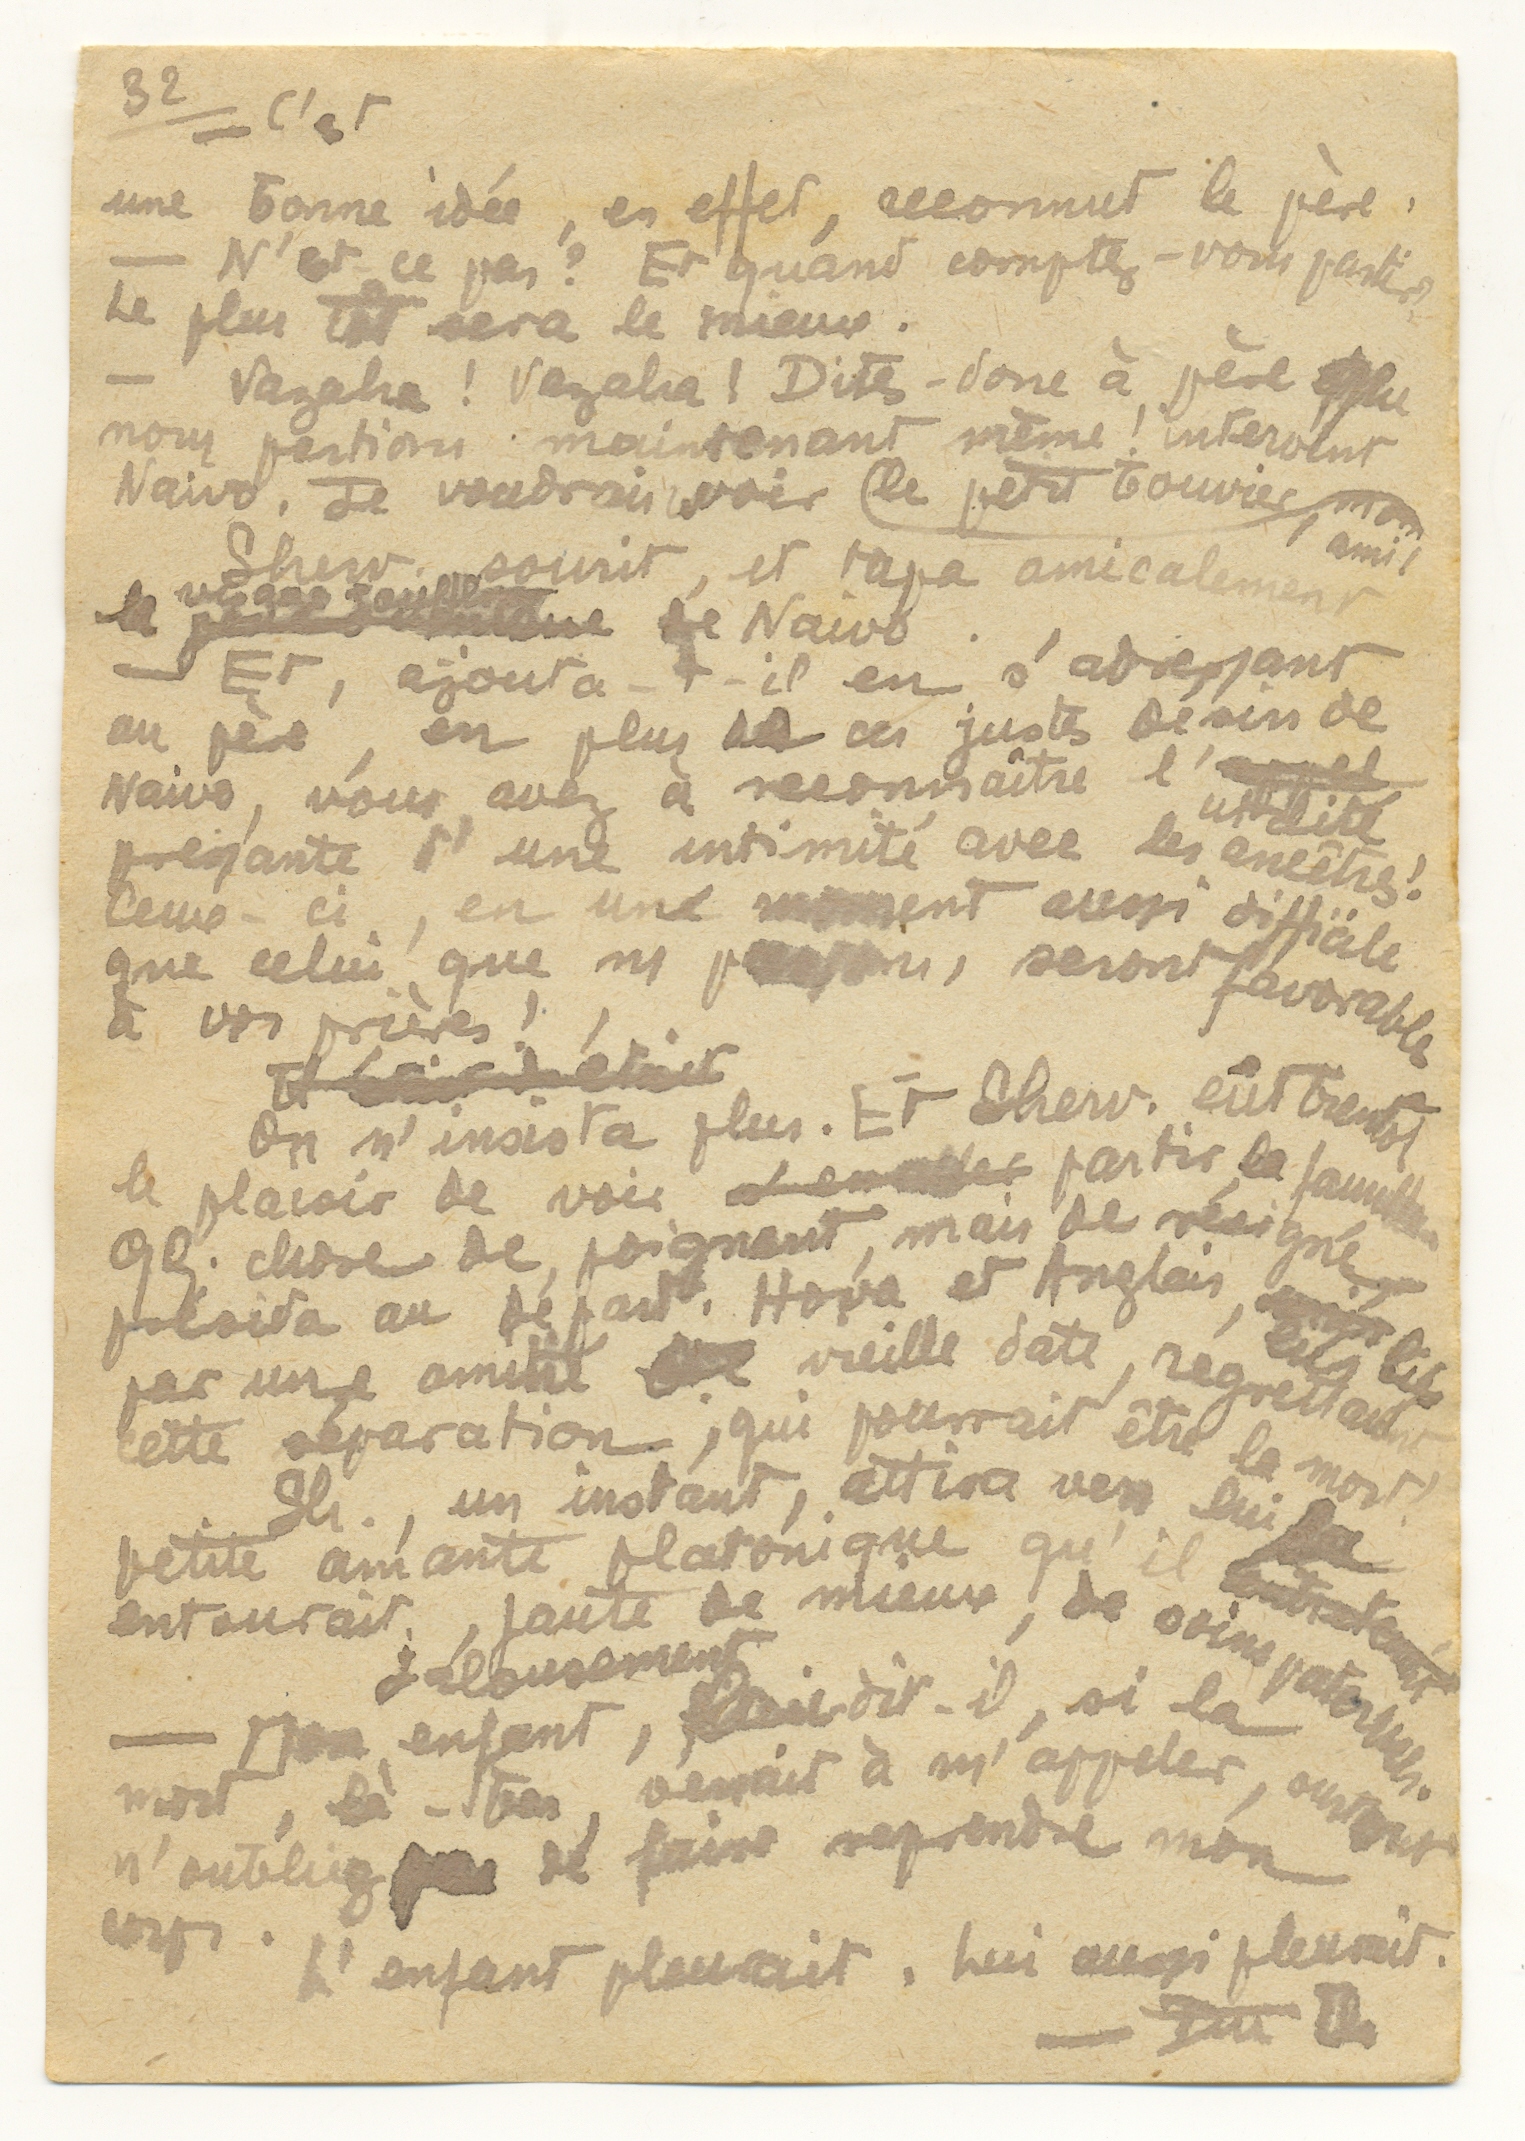 32
— C'est
une bonne idée, en effet, reconnut le père.
— N'est-ce pas ? Et quand comptez-vous partir ?
Le plus tôt sera le mieux.
— Vazaha ! Vazaha ! Dites-donc à père que
nous partions maintenant même ! intervint
Naivo. Je voudrais voir le petit bouvier, mon
ami !
Sherv. sourit, et tapa amicalement
visage
le de Naivo.
— Et, ajouta-t-il en s'adressant
au père, en plus de ces justes désirs de
Naivo, vous avez à reconnaître l'appel
utilité
pressante d'une intimité avec les ancêtres !
Ceux-ci, en une moment aussi difficile
que celui que ns passons, seront favorables
à vos prières !
On n'insista plus. Et Sherv. eût bientôt
le plaisir de voir partir la famille.
Qq. chose de poignant, mais de résigné,
présida au départ. Hova et Anglais,
liés
par une amitié de vieille date, regrettaient
cette séparation, qui pourrait être la mort !
Sh., un instant, attira vers lui la
petite amante platonique qu'il entretenait
entourait, faute de mieux, de soins paternels.
jalousement
— Mon enfant, dit-il, si la
mort, là-bas, venait à m'appeler, surtout
n'oubliez pas de faire reprendre mon
corps.
L'enfant pleurait. Lui aussi pleurait.
—